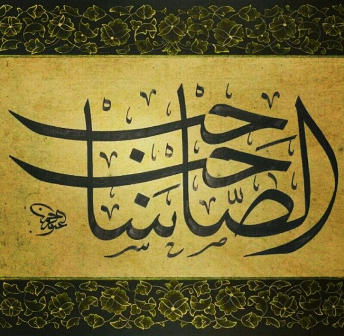 الصَّاحب سَاحب